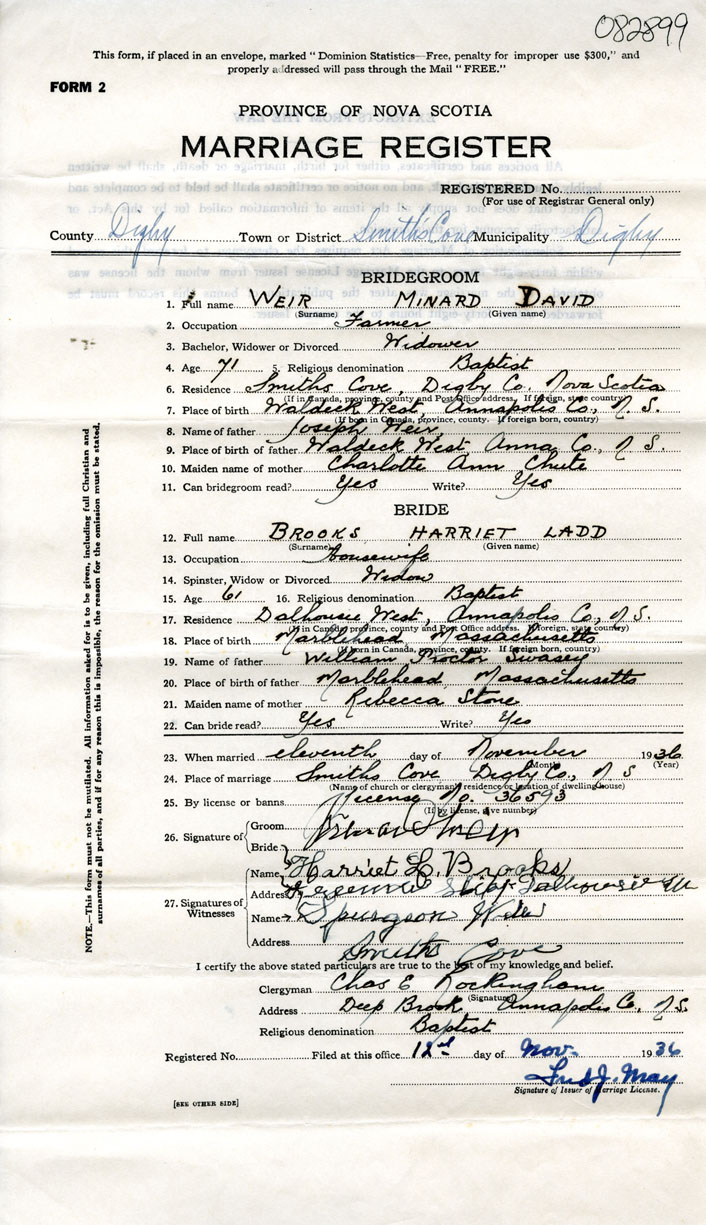 082899
This form, if placed in an envelope, marked "Dominion Statistics—Free, penalty for improper use $300," and
properly addressed will pass through the Mail "FREE."
FORM 2
PROVINCE OF NOVA SCOTIA
MARRIAGE REGISTER
REGISTERED No.
(For use of Registrar General only)
County Digby Town or District Smith's Cove Municipality Digby
BRIDEGROOM
1. Full name WEIR MINARD DAVID
(Surname) (Given name)
2. Occupation Farmer
3. Bachelor, Widower or Divorced Widower
4. Age 71 5. Religious denomination Baptist
6. Residence Smiths Cove, Digby Co. Nova Scotia
(If in Canada, province, county and Post Office address. If foreign, state country)
7. Place of birth Waldeck West, Annapolis Co., N. S.
(If born in Canada, province, county. If foreign born, country)
8. Name of father Joseph Weir
9. Place of birth of father Waldeck West Anna Co., N S.
10. Maiden name of mother Charlotte Ann Chute
11. Can bridegroom read? Yes Write? Yes
BRIDE
12. Full name BROOKS HARRIET LADD
(Surname) (Given name)
13. Occupation housewife
14. Spinster, Widow or Divorced Widow
15. Age 61 16. Religious denomination Baptist
17. Residence Dalhousie West, Annapolis Co., N S.
(If in Canada, province, county and Post Office address. If foreign, state country)
18. Place of birth Marblehead, Massachusetts
(If born in Canada, province, county. If foreign born, country)
19. Name of father William Proctor Swasey
20. Place of birth of father Marblehead, Massachusetts
21. Maiden name of mother Rebecca Stone
22. Can bride read? Yes Write? Yes
23. When married eleventh day of November 1936
(Month) (Year)
24. Place of marriage Smiths Cove Digby Co., N S
(Name of church or clergyman's residence or location of dwelling house)
25. By license or banns License No. 36593
(If by license, give number)
26. Signature of Groom
Bride
Name Harriet L. Brooks
Address Dalhousie
27. Signatures of Witnesses
Name Spurgeon Weir
Address Smiths Cove
I certify the above stated particulars are true to the best of my knowledge and belief.
Clergyman Chas E Rockingham
(Signature)
Address Deep Brook Annapolis Co, N.S.
Religious denomination Baptist
Registered No. Filed at this office 12 day of Nov. 1936
Fred J. May
Signature of Issuer of Marriage License.
[SEE OTHER SIDE]
NOTE.—This form must not be mutilated. All information asked for is to be given, including full Christian and
surnames of all parties, and if for any reason this is impossible, the reason for the omission must be stated.